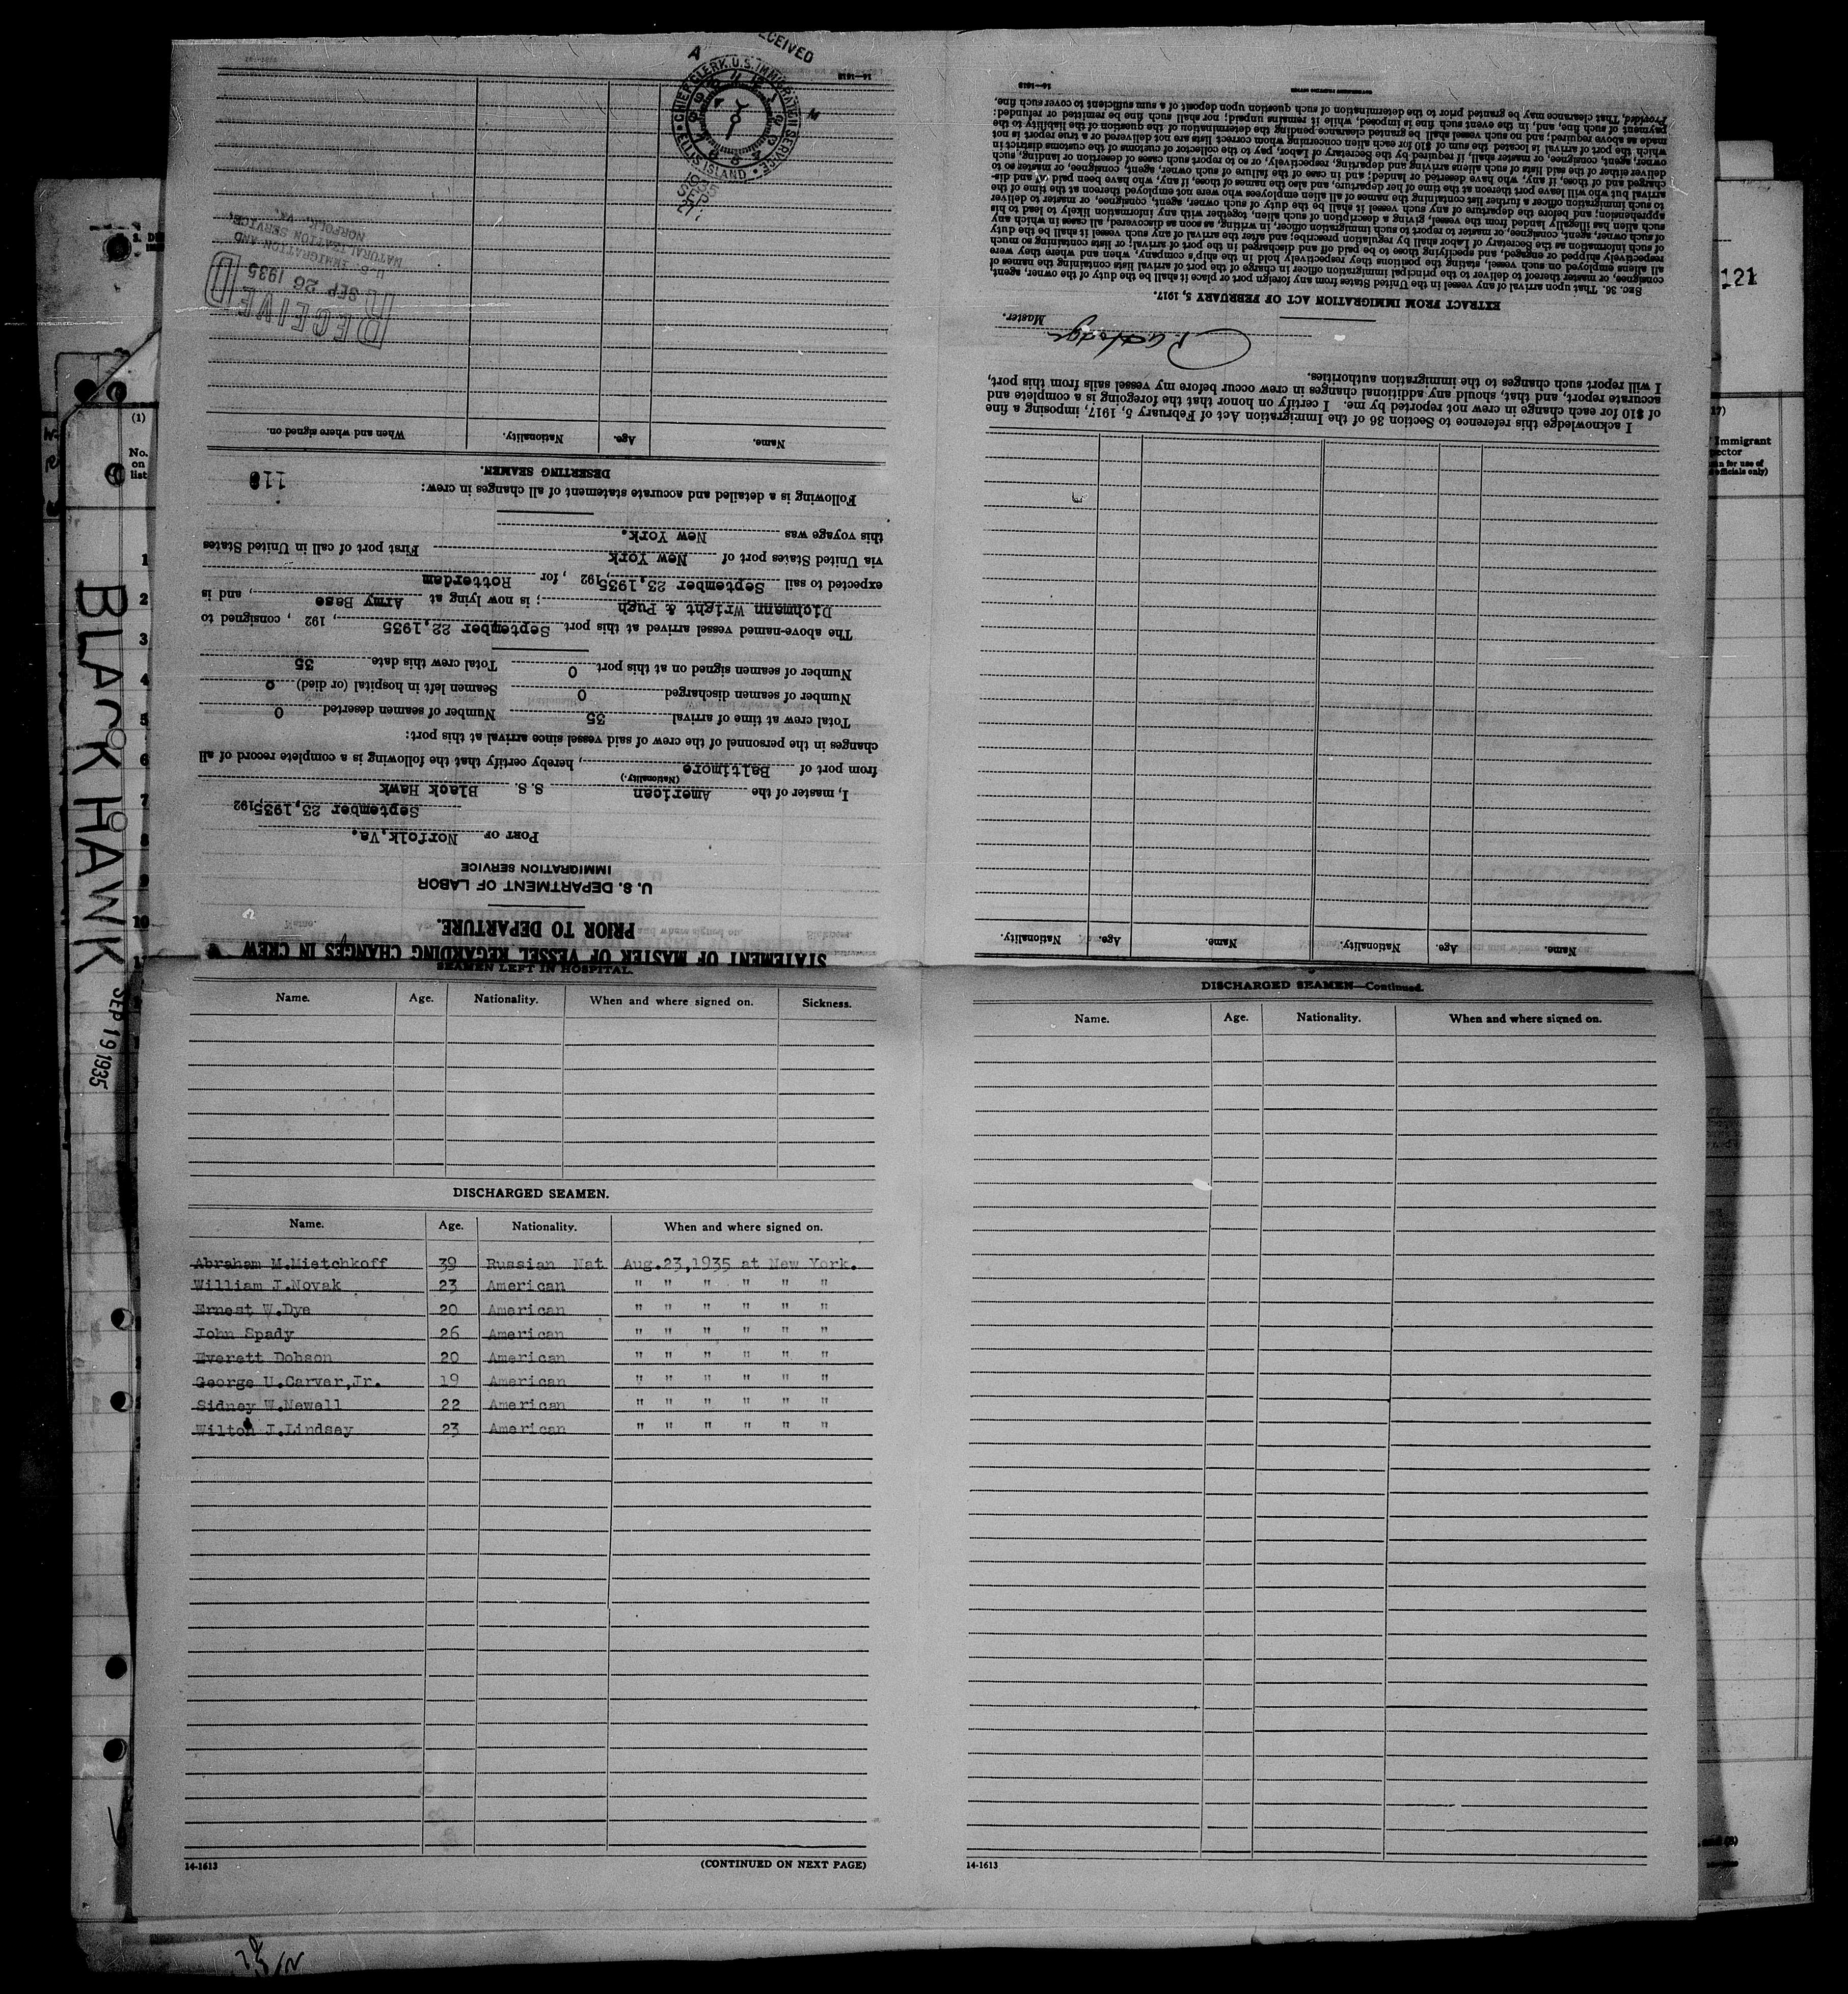 BLACK HAWK
SEP 19 1935
(1)
No.
on
list
1
2
3
4
5
6
7
8
9
10
121
Immigrant
STATEMENT OF MASTER OF VESSEL REGARDING CHANGES IN CREW
PRIOR TO DEPARTURE.
U. S. DEPARTMENT OF LABOR
IMMIGRATION SERVICE
PORT OF Norfolk, Va.
September 23, 1935, 192
I, master of the American S. S. Black Hawk
(Nationality.)
from port of Baltimore, hereby certify that the following is a complete record of all
changes in the personnel of the crew of said vessel since arrival at this port:
Total crew at time of arrival 35 Number of seamen deserted 0
Number of seamen discharged 0 Seamen left in hospital (or died) 0
Number of seamen signed on at this port 0 Total crew this date 35
The above-named vessel arrived at this port September 22, 1935, 192 , consigned to
Dichmann Wright & Pugh; is now lying at Army Base, and is
expected to sail September 23, 1935, 192 , for Rotterdam
via United States port of New York First port of call in United States
this voyage was New York.
Following is a detailed and accurate statement of all changes in crew:
DESERTING SEAMEN.
Name. Age. Nationality. When and where signed on.
RECEIVED
SEP 26 1935
U. S. IMMIGRATION AND
NATURALIZATION SERVICE,
NORFOLK, VA.
RECEIVED
CHIEF CLERK, U.S. IMMIGRATION SERVICE
ELLIS ISLAND
1935
SEP
27
14—1613
Name. Age. Nationality. Name. Age. Nationality.
I acknowledge this reference to Section 36 of the Immigration Act of February 5, 1917, imposing a fine
of $10 for each change in crew not reported by me. I certify on honor that the foregoing is a complete and
accurate report, and that, should any additional changes in crew occur before my vessel sails from this port,
I will report such changes to the immigration authorities.
Master.
EXTRACT FROM IMMIGRATION ACT OF FEBRUARY 5, 1917.
SEC. 36. That upon arrival of any vessel in the United States from any foreign port or place it shall be the duty of the owner, agent,
consignee, or master thereof to deliver to the principal immigration officer in charge of the port of arrival lists containing the names of
all aliens employed on such vessel, stating the positions they respectively hold in the ship's company, when and where they were
respectively shipped or engaged, and specifying those to be paid off and discharged in the port of arrival; or lists containing so much
of such information as the Secretary of Labor shall by regulation prescribe; and after the arrival of any such vessel it shall be the duty
of such owner, agent, consignee, or master to report to such immigration officer, in writing, as soon as discovered, all cases in which any
such alien has illegally landed from the vessel, giving a description of such alien, together with any information likely to lead to his
apprehension; and before the departure of any such vessel it shall be the duty of such owner, agent, consignee, or master to deliver
to such immigration officer a further list containing the names of all alien employees who were not employed thereon at the time of the
arrival but who will leave port thereon at the time of her departure, and also the names of those, if any, who have been paid off and dis-
charged and of those, if any, who have deserted or landed; and in case of the failure of such owner, agent, consignee, or master so to
deliver either of the said lists of such aliens arriving and departing, respectively, or so to report such cases of desertion or landing, such
owner, agent, consignee, or master shall, if required by the Secretary of Labor, pay to the collector of customs of the customs district in
which the port of arrival is located the sum of $10 for each alien concerning whom correct lists are not delivered or a true report is not
made as above required; and no such vessel shall be granted clearance pending the determination of the question of the liability to the
payment of such fine, and, in the event such fine is imposed, while it remains unpaid; nor shall such fine be remitted or refunded:
Provided, That clearance may be granted prior to the determination of such question upon deposit of a sum sufficient to cover such fine.
14—1613
SEAMEN LEFT IN HOSPITAL.
Name. Age. Nationality. When and where signed on. Sickness.
DISCHARGED SEAMEN.
Name. Age. Nationality. When and where signed on.
Abraham M.Mietchkoff 39 Russian Nat Aug.23,1935 at New York.
William J.Novak 23 American " " " " " "
Ernest W.Dye 20 American " " " " " "
John Spady 26 American " " " " " "
Everett Dobson 20 American " " " " " "
George U.Carver,Jr. 19 American " " " " " "
Sidney W.Newell 22 American " " " " " "
Wilton J.Lindsey 23 American " " " " " "
14-1613 (CONTINUED ON NEXT PAGE)
DISCHARGED SEAMEN—Continued.
Name. Age. Nationality. When and where signed on.
14-1613